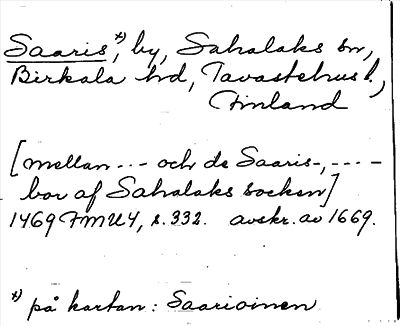 Saaris *), by, Sahalaks sn,
Birkala hd, Tavastehus l.,
Finland
[mellan --- och de Saaris-, ----
bor af Sahalaks socken]
1469 FMU4, s. 332. avskr. av 1669.
*) på kartan: Saarioinen